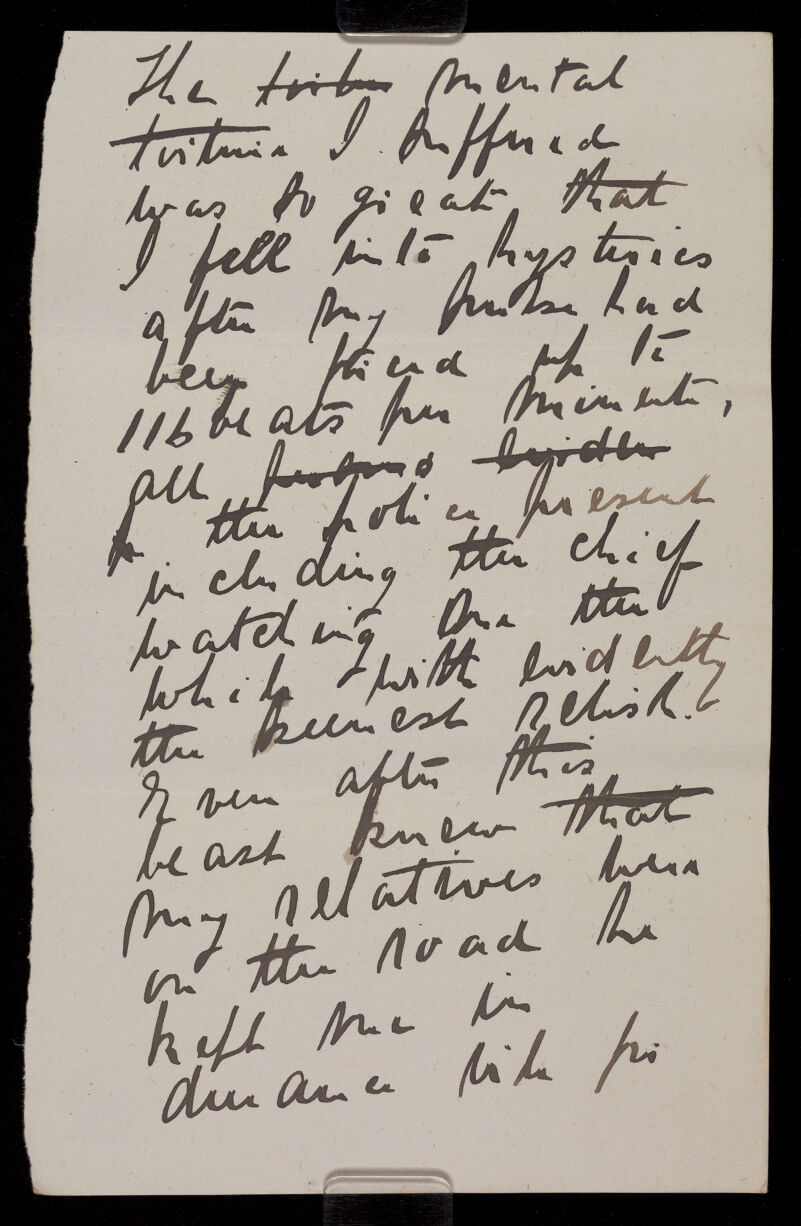 The tortu mental
torture I suffered
was so great that
I fell into hysterics
after my pulse had
been forced up to
116 beats per minute,
all
the police present
including the chief
watching me the
while with evidently
the keenest relish.
Even after this
beast knew that
my relatives were
on the road he
kept me in
durance vile for